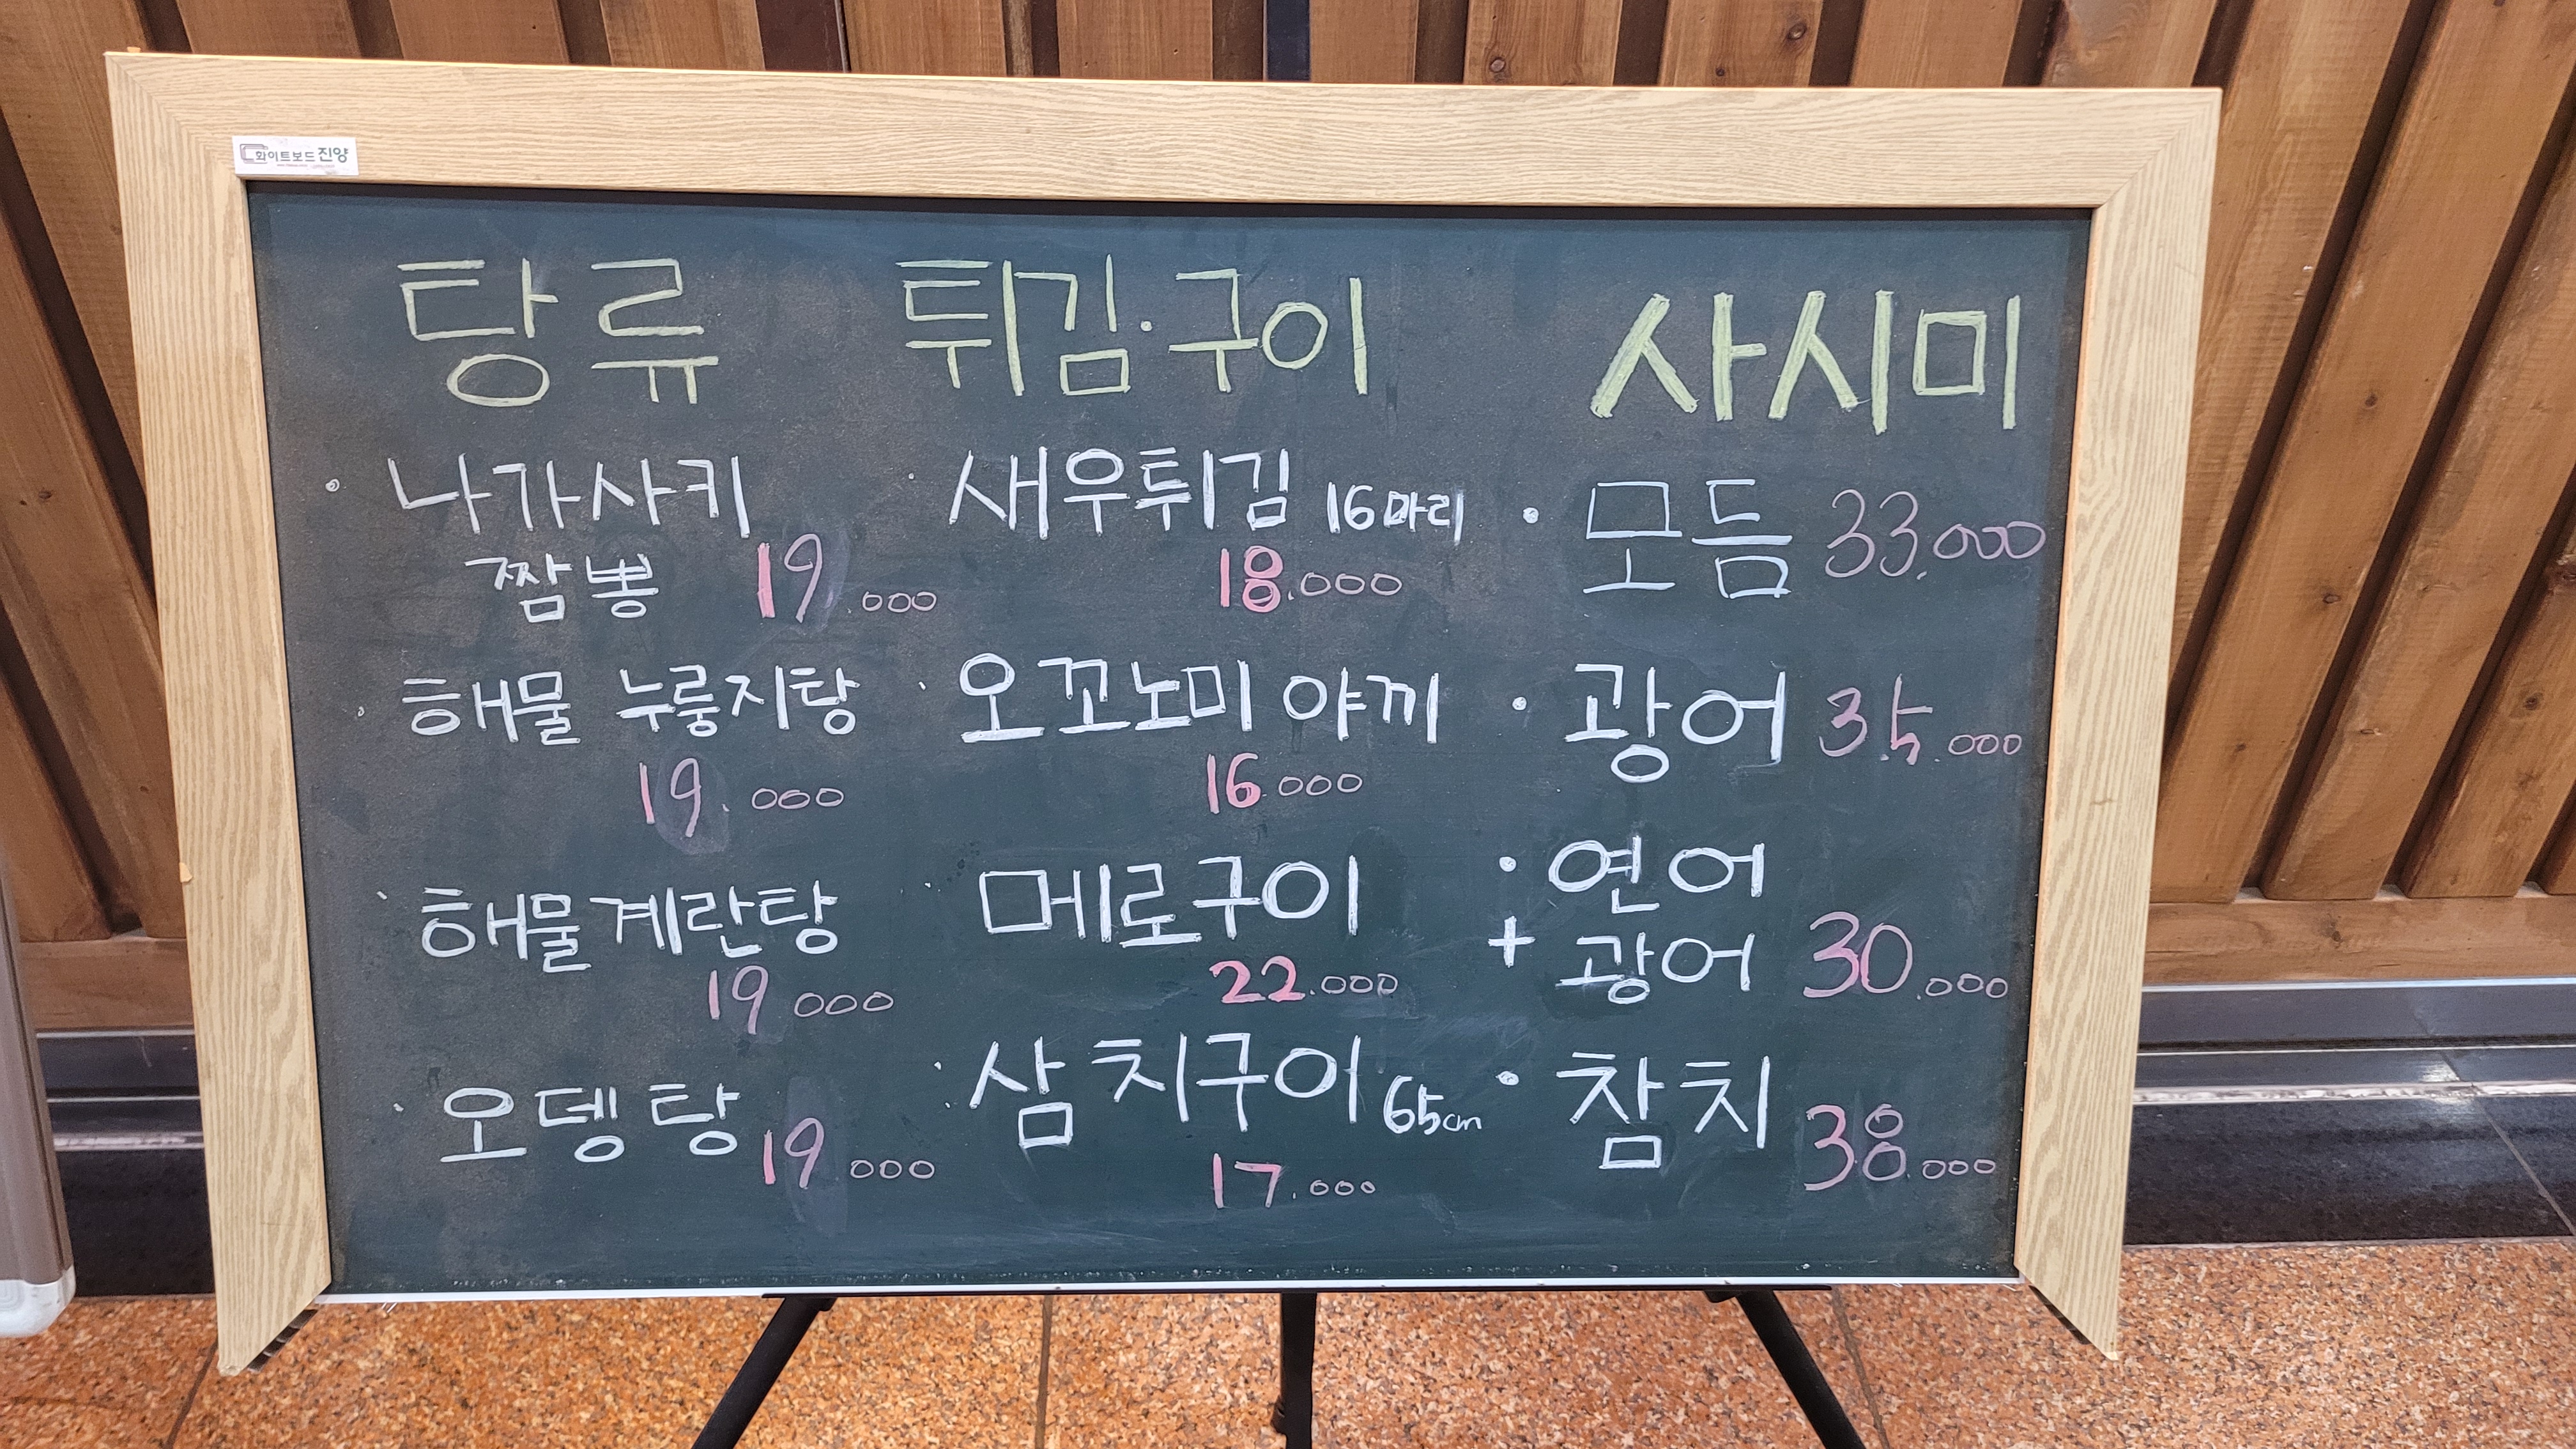 화이트보드진양
탕류
나가사키
짬뽕 19.000
해물 누룽지탕
19.000
해물계란탕
19000
오뎅탕 19000
튀김·구이
새우튀김 16마리
18.000
오꼬노미 야끼
16.000
메로구이
22.000
삼치구이 65cm
17.000
사시미
모듬 33.000
광어 35.000
연어
+ 광어 30.000
참치 38.000